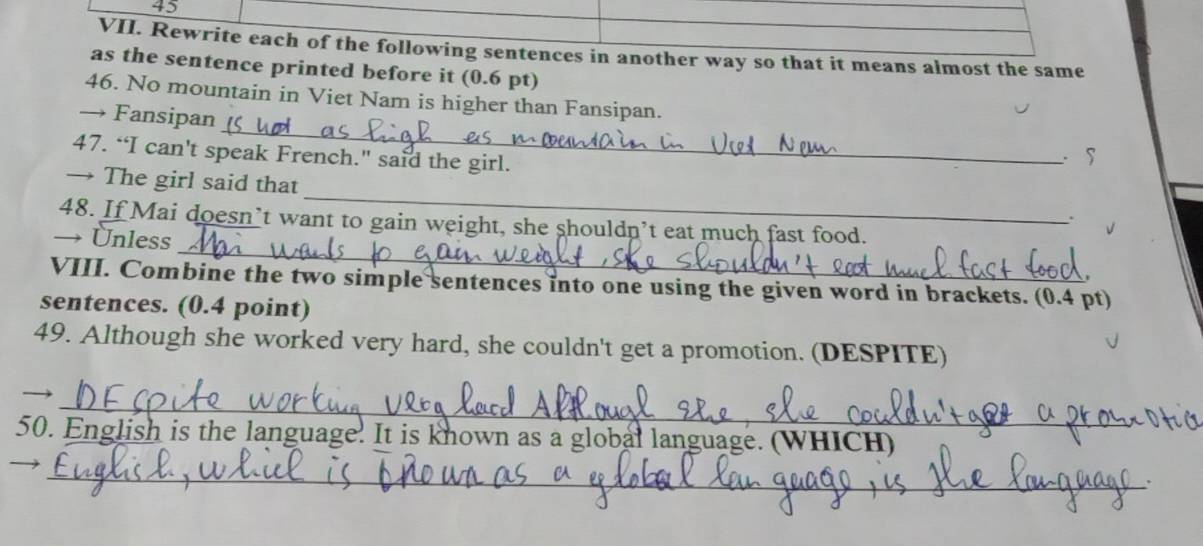 45
VII. Rewrite each of the following sentences in another way so that it means almost the same
as the sentence printed before it (0.6 pt)
46. No mountain in Viet Nam is higher than Fansipan.
→ Fansipan is not as high as mountain in Viet Nam.
47. “I can't speak French." said the girl.
→ The girl said that
48. If Mai doesn’t want to gain weight, she shouldn’t eat much fast food.
→ Unless Mai wants to gain weight, she shouldn't eat much fast food.
VIII. Combine the two simple sentences into one using the given word in brackets. (0.4 pt)
sentences. (0.4 point)
49. Although she worked very hard, she couldn't get a promotion. (DESPITE)
→ DEspite working very hard Although she, she couldn't get a promotio
50. English is the language. It is known as a global language. (WHICH)
→ English, which is known as a global language, is the language.